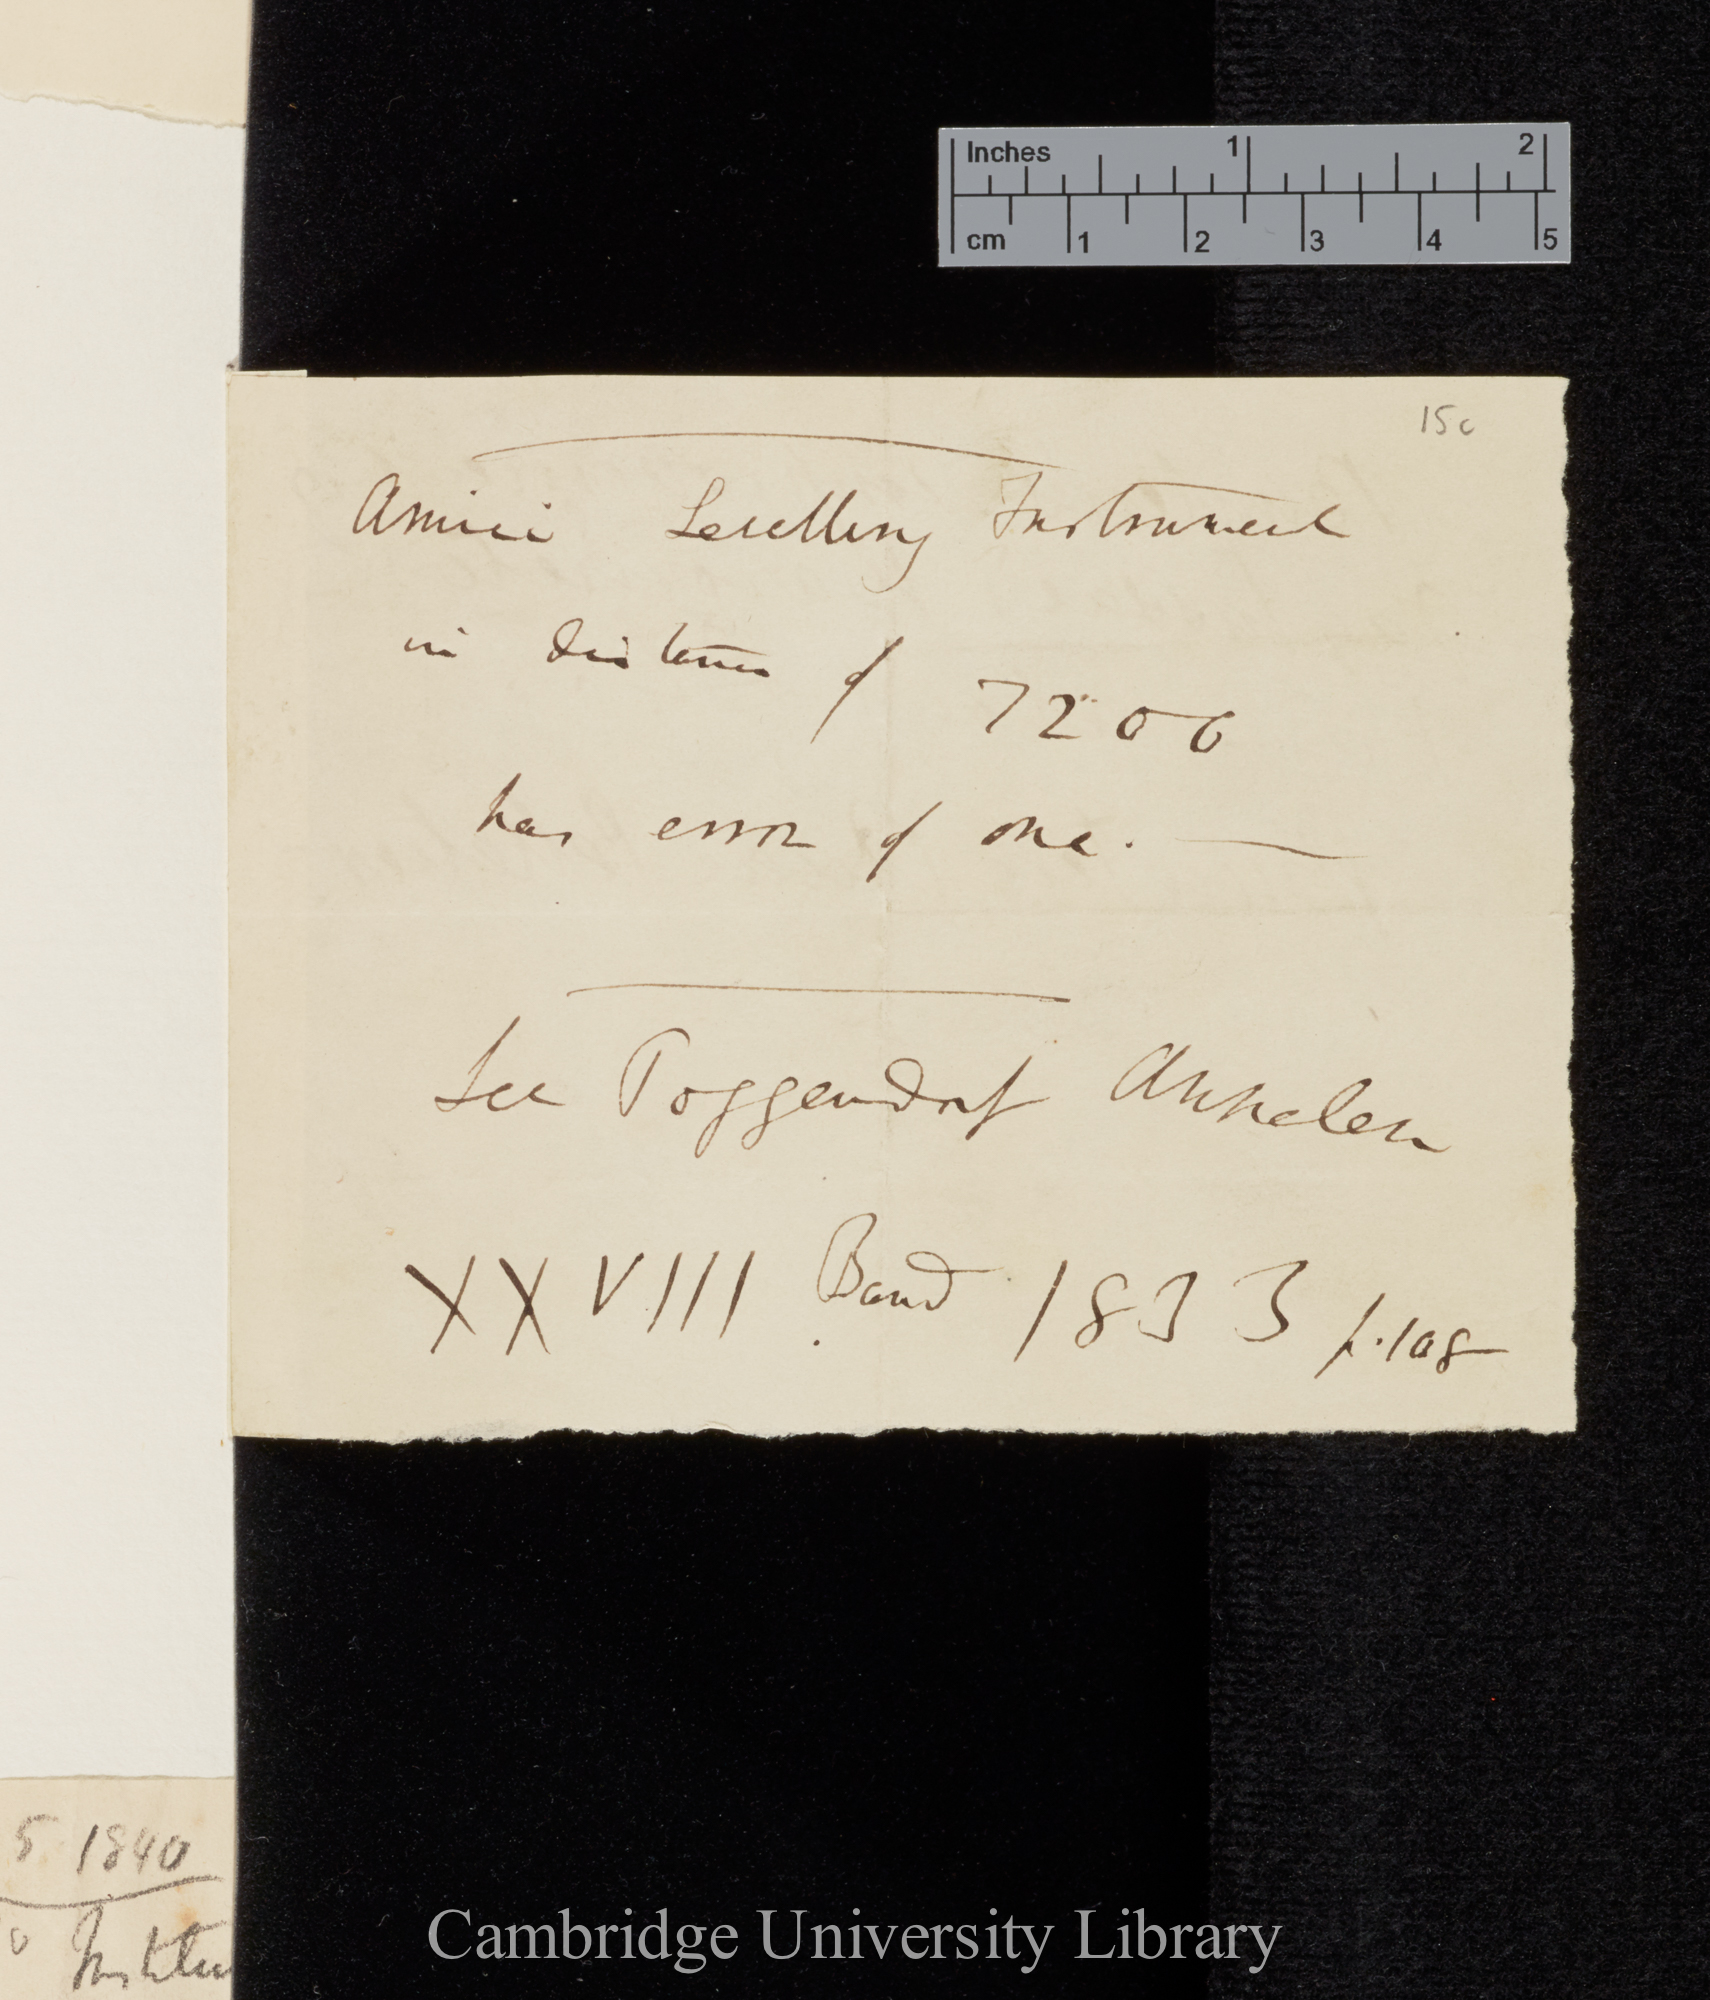 Inches 1 2
cm 1 2 3 4 5
15c
Amici Levelling Instrument
in distance of 7200
has error of one. —
See Poggendorf Annalen
XXVIII Band 1833 p. 108
5 1840
Cambridge University Library